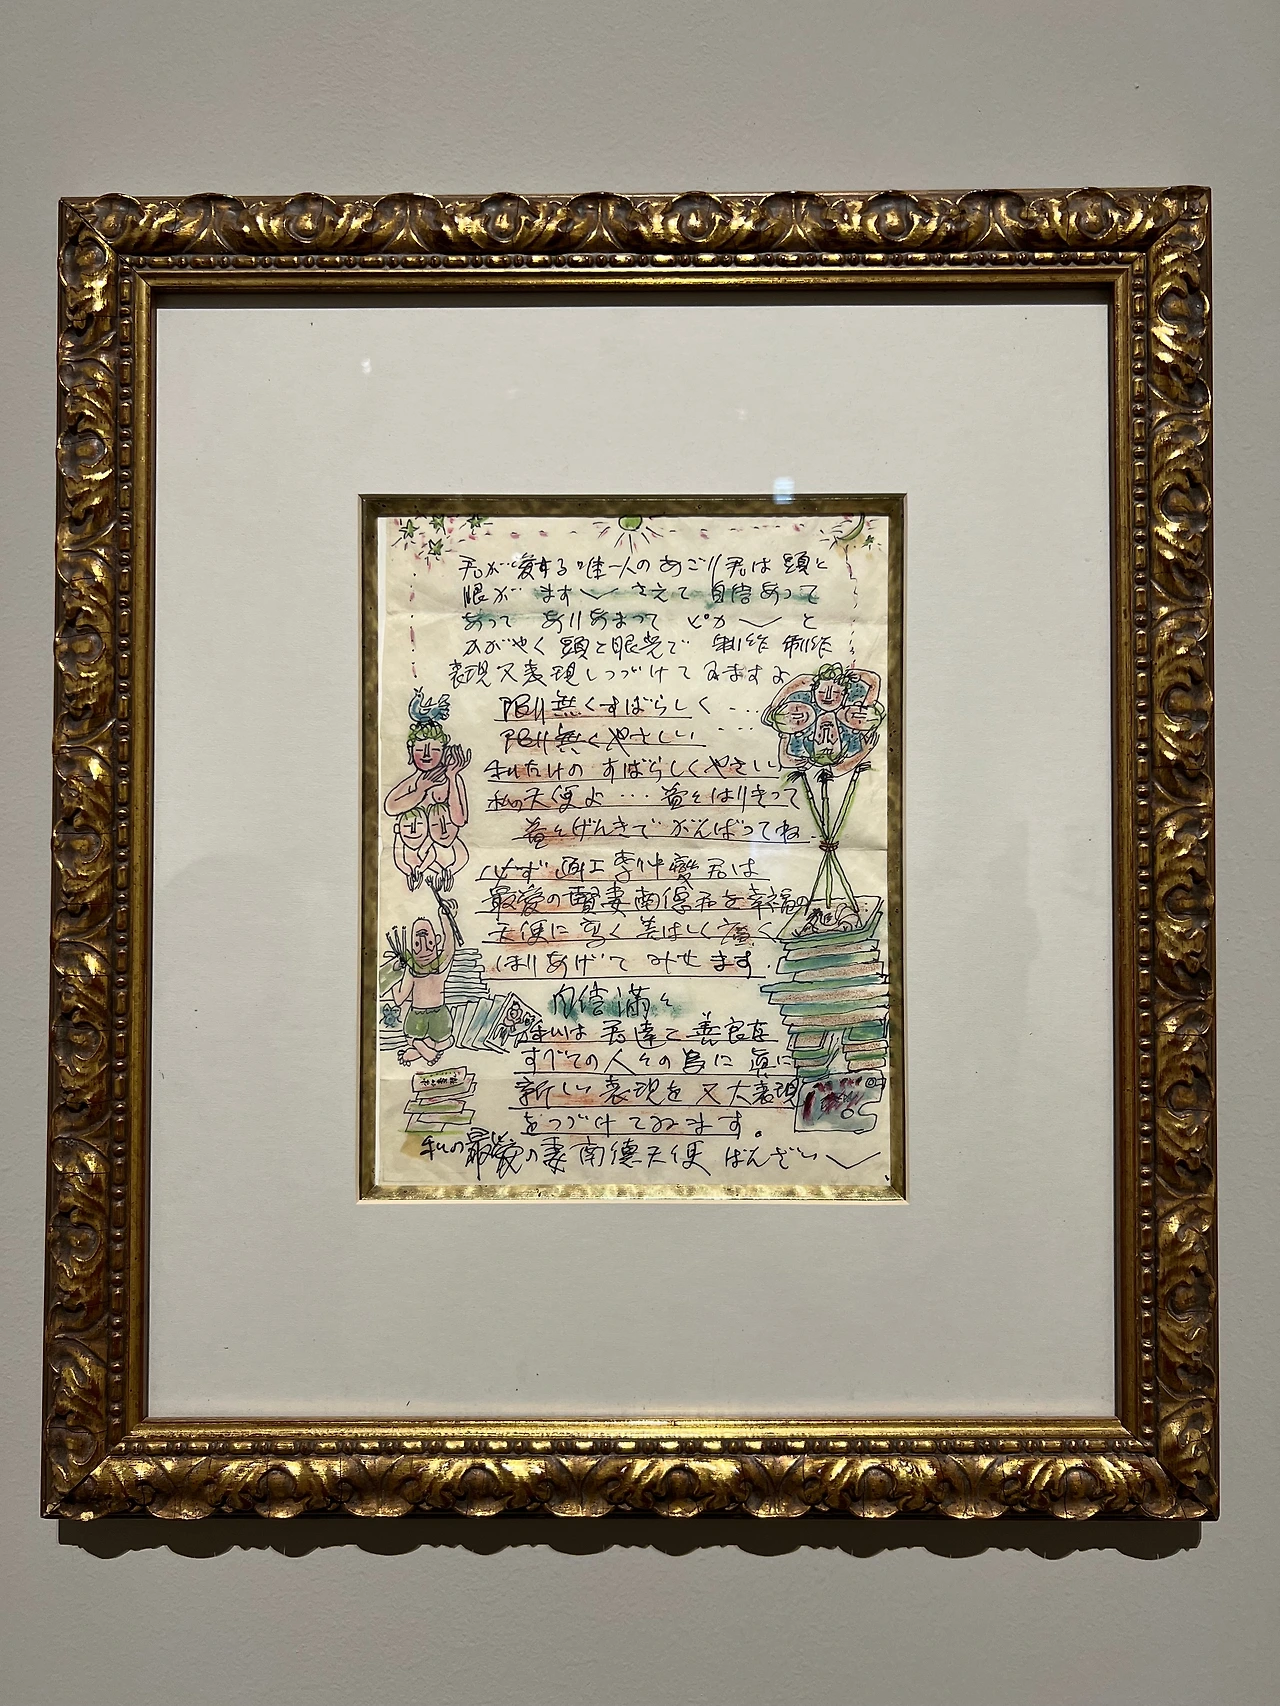 君が愛する唯一人のあごり君は頭と
眼が ます〱 さえて 自信あって
あって ありあまって ピカ〱 と
かがやく頭と眼光で 制作 制作
表現又表現しつづけてゐますよ
限り無くすばらしく・・・
限り無くやさしい・・・
私だけの すばらしくやさしい
私の天使よ・・・益々はりきって
益々げんきで がんばってね
必ず 画工 李仲燮君は
最愛の賢妻南徳君を幸福の
天使に高く美はしく廣く
ほりあげて みせます.
自信満々
私は 君達と善良な
すべての人々の為に 真に
新しい表現を 又 大表現
をつづけてゐます。
私の最愛の妻南徳天使 ばんざい〱